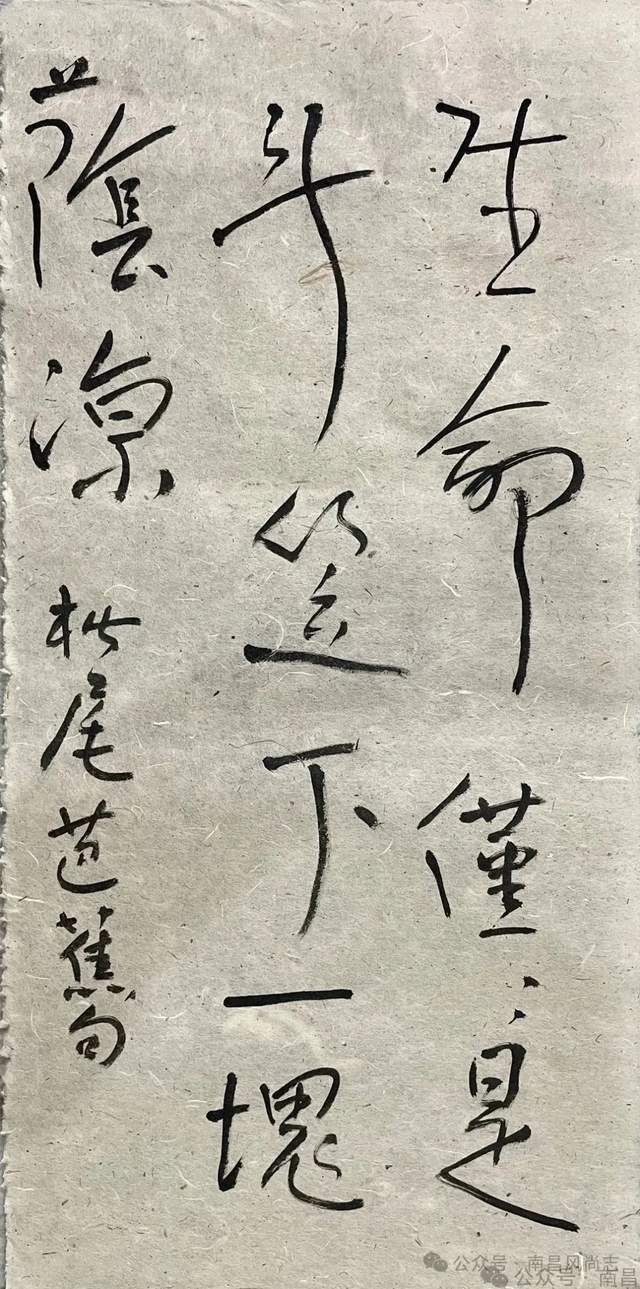 生命僅、是
斗笠下一塊
蔭凉
松尾芭蕉句
公众号·南昌风尚志
公众号·南昌